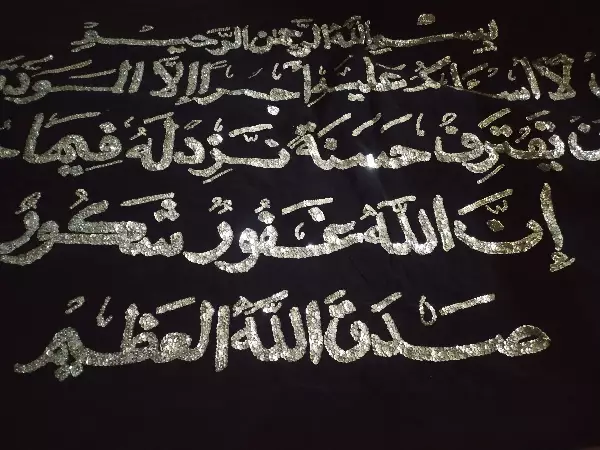 بِسْمِ اللهِ الرَّحْمٰنِ الرَّحِيْمِ
لَا أَسْأَلُكُمْ عَلَيْهِ أَجْرًا إِلَّا الْمَوَدَّةَ
يَقْتَرِفْ حَسَنَةً نَّزِدْ لَهُ فِيهَا
إِنَّ اللّٰهَ غَفُورٌ شَكُورٌ
صَدَقَ اللّٰهُ الْعَظِيْمُ